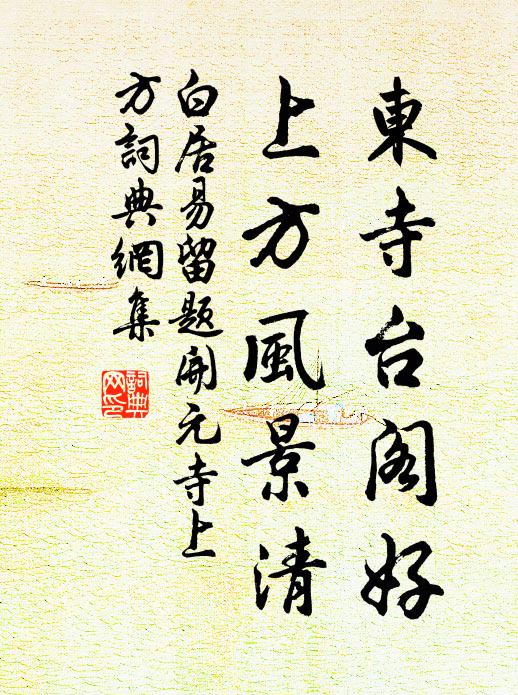 東寺台阁好
上方風景清
白居易留题開元寺上
方詞典網集
詞典
网印